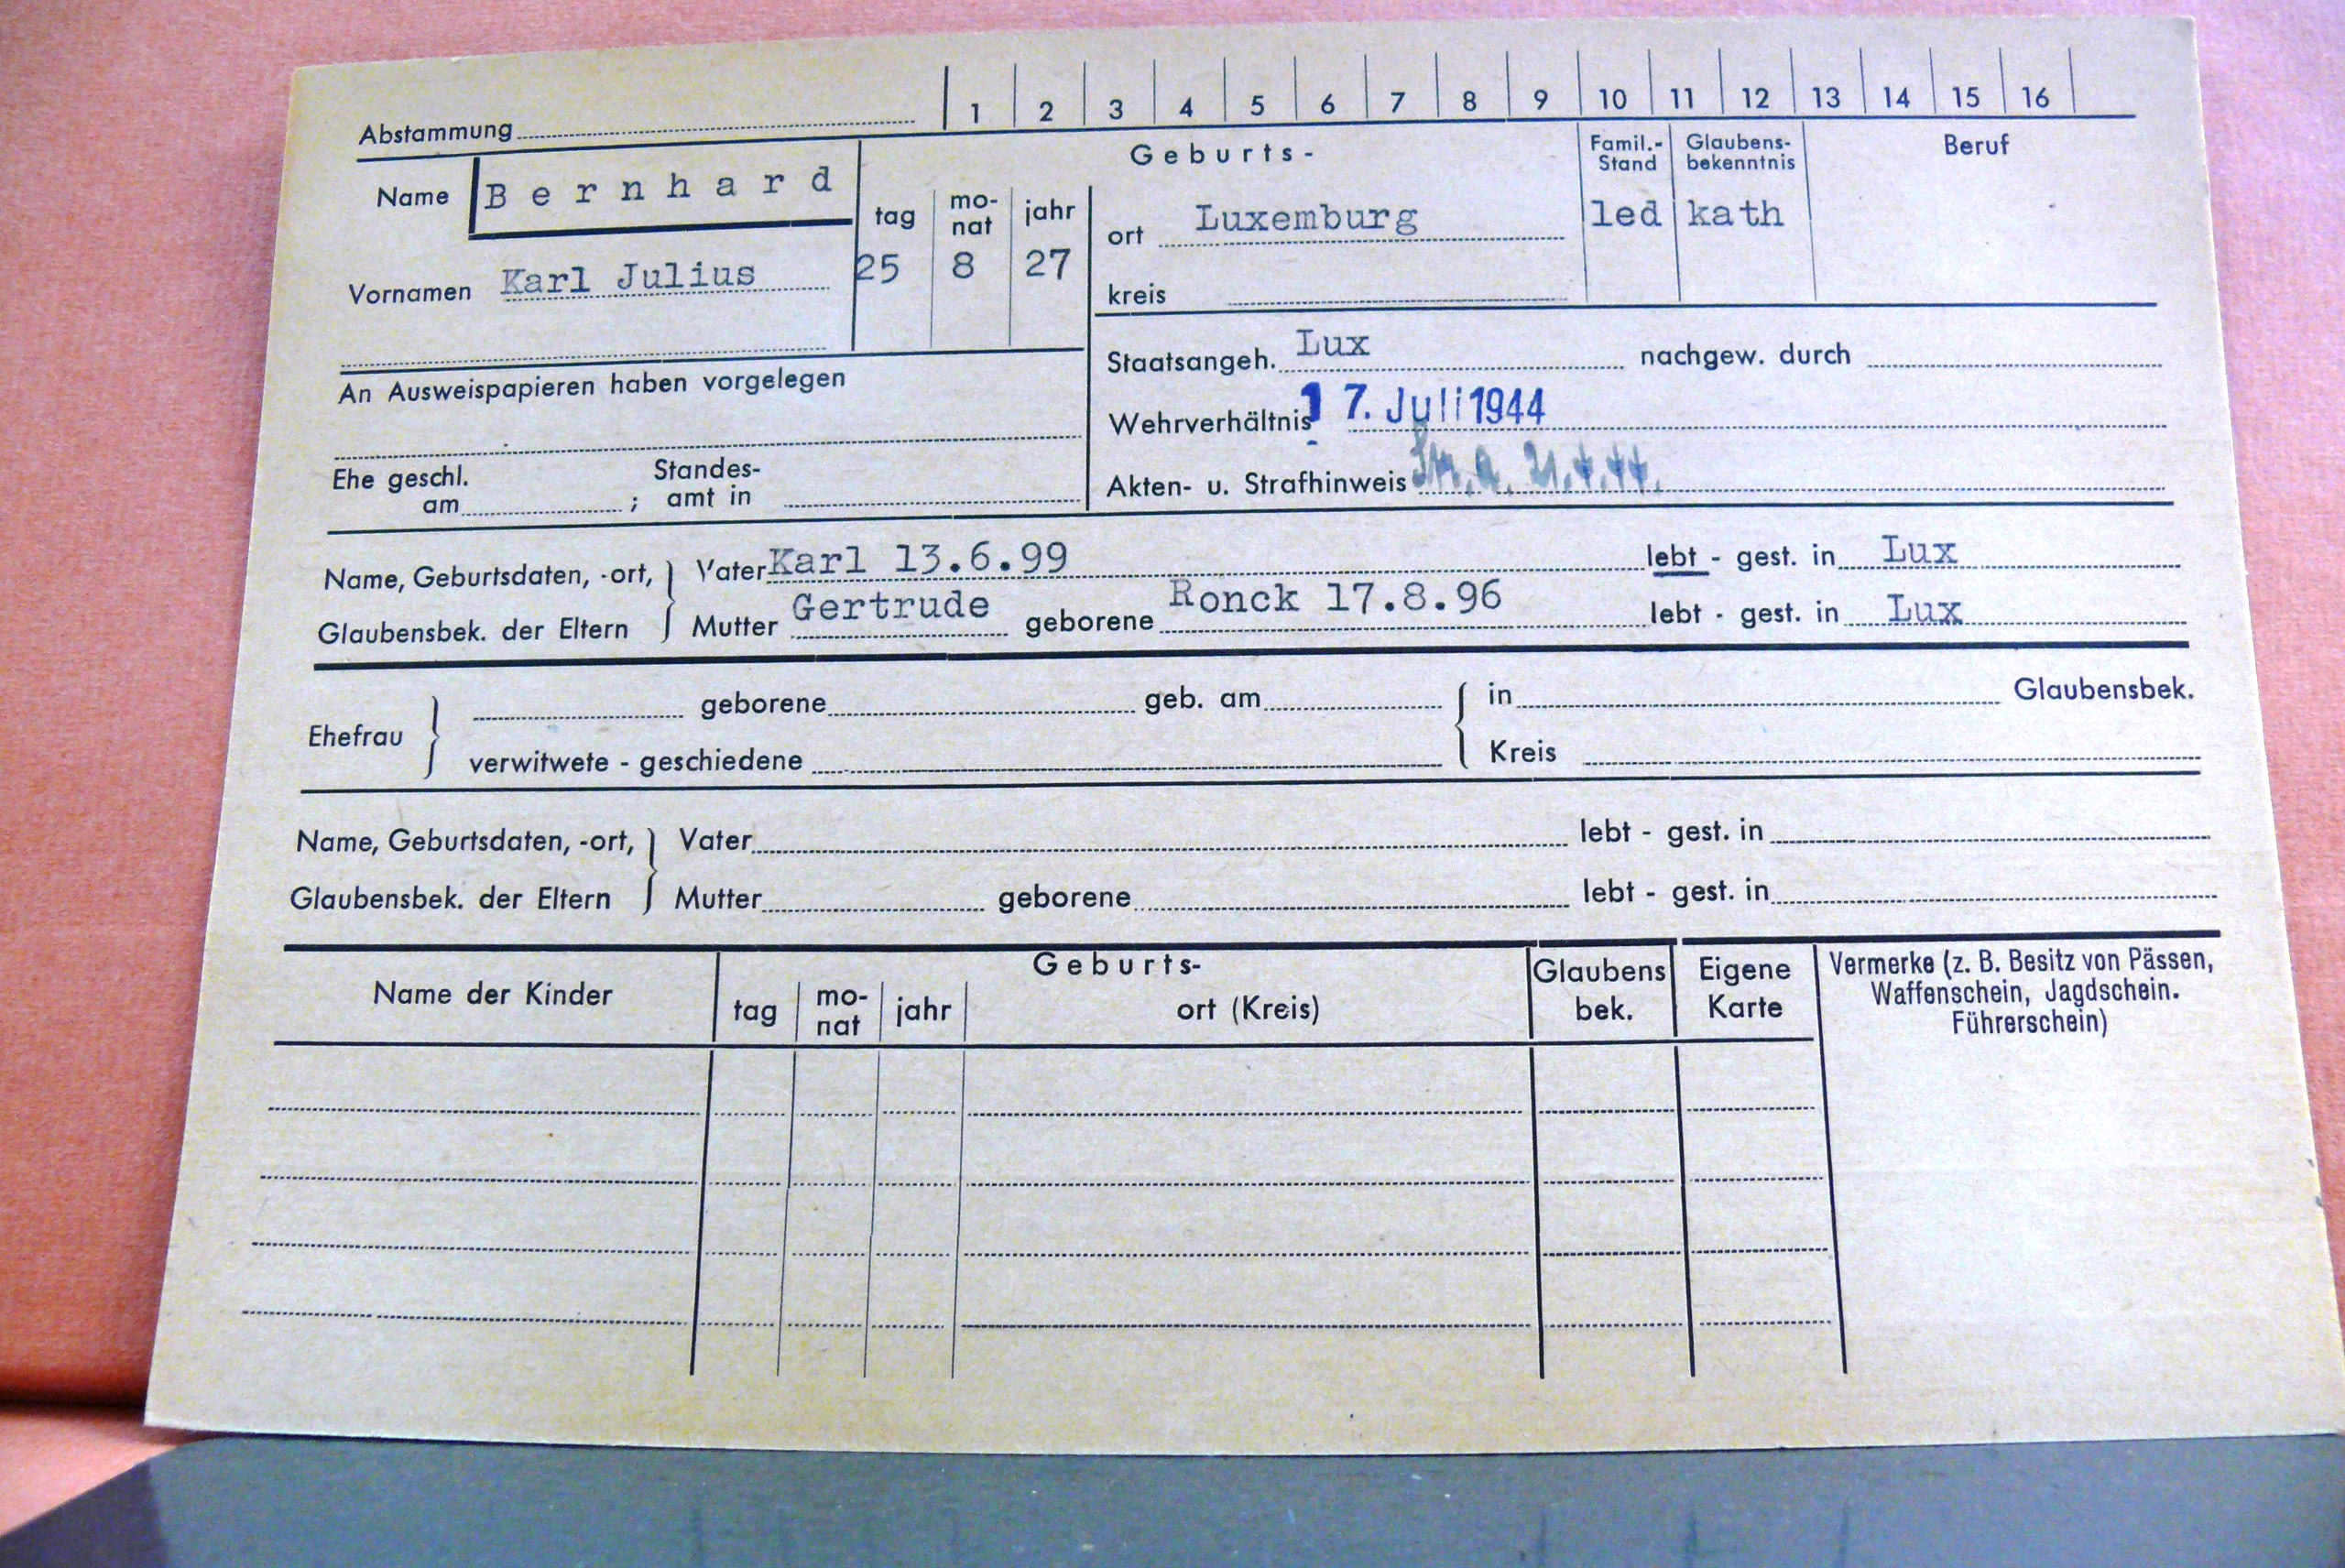 Abstammung 1 2 3 4 5 6 7 8 9 10 11 12 13 14 15 16
Name Bernhard
Vornamen Karl Julius
Geburts-
tag mo-nat jahr
25 8 27
ort Luxemburg
kreis
Famil.-Stand
led
Glaubens-bekenntnis
kath
Beruf
An Ausweispapieren haben vorgelegen
Ehe geschl. am ; Standes-amt in
Staatsangeh. Lux nachgew. durch
Wehrverhältnis 17. Juli 1944
Akten- u. Strafhinweis 21.4.44.
Name, Geburtsdaten, -ort, Vater Karl 13.6.99 lebt - gest. in Lux
Glaubensbek. der Eltern Mutter Gertrude geborene Ronck 17.8.96 lebt - gest. in Lux
Ehefrau geborene geb. am in Glaubensbek.
verwitwete - geschiedene Kreis
Name, Geburtsdaten, -ort, Vater lebt - gest. in
Glaubensbek. der Eltern Mutter geborene lebt - gest. in
Name der Kinder
Geburts-
tag mo-nat jahr ort (Kreis)
Glaubens bek.
Eigene Karte
Vermerke (z. B. Besitz von Pässen,
Waffenschein, Jagdschein.
Führerschein)